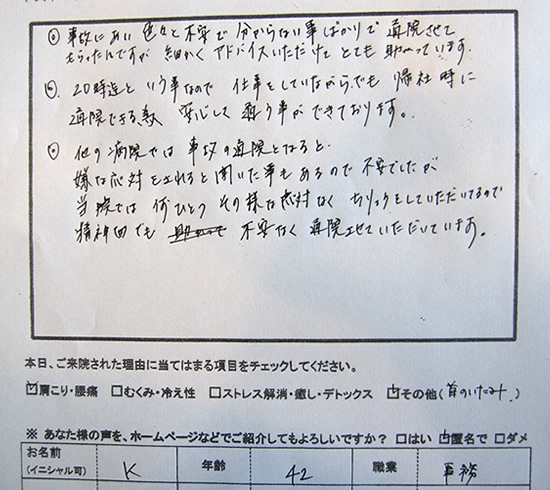 ◎ 事故にあい 色々と不安で 分からない事ばかりで 通院させて
もらったんですが 細かく アドバイスいただけて とても 助かっています。
◎ 20時迄と いう事なので 仕事をしていながらでも 帰社時に
通院できる為 安心して 通う事ができております。
◎ 他の病院では 事故の通院となると
嫌な応対をされると聞いた事もあるので 不安でしたが
当院では 何ひとつ その様な応対なく をしていただいてるので
精神面でも 不安なく 通院させていただいています。
本日、ご来院された理由に当てはまる項目をチェックしてください。
☑肩こり・腰痛 □むくみ・冷え性 □ストレス解消・癒し・デトックス ☑その他(首のいたみ)
※ あなた様の声を、ホームページなどでご紹介してもよろしいですか？ □はい ☑匿名で □ダメ
お名前 (イニシャル可) K 年齢 42 職業 事務